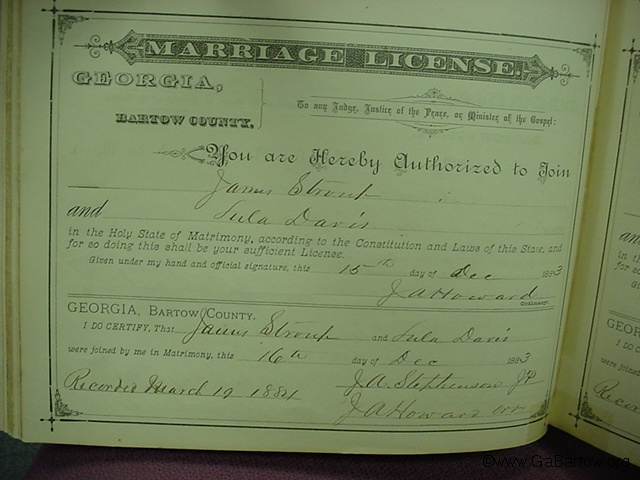 MARRIAGE LICENSE.
GEORGIA,
BARTOW COUNTY.
To any Judge, Justice of the Peace, or Minister of the Gospel:
You are Hereby Authorized to Join
James Stroup
and Lula Davis
in the Holy State of Matrimony, according to the Constitution and Laws of this State, and
for so doing this shall be your sufficient License.
Given under my hand and official signature, this 15th day of Dec 1883
J A Howard
Ordinary.
GEORGIA, BARTOW COUNTY.
I DO CERTIFY, That James Stroup and Lula Davis
were joined by me in Matrimony, this 16th day of Dec 1883
Recorded March 19 1884 J. A. Stephenson JP
J A Howard ord
GEORG
I DO C
were joined
Recor
©www.GaBartow.org